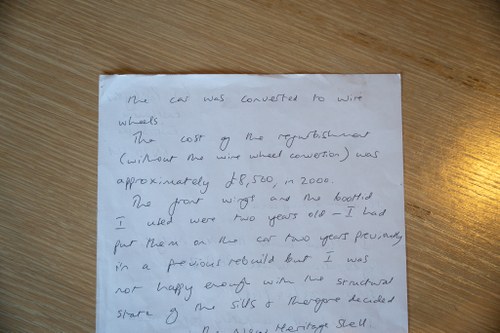 The car was converted to wire
wheels
The cost of the refurbishment
(without the wire wheel conversion) was
approximately £8,500, in 2000.
The front wings and the bootlid
I used were two years old - I had
put them on the car two years previously
in a previous rebuild but I was
not happy enough with the structural
state of the sills & therefore decided
the New Heritage Shell.